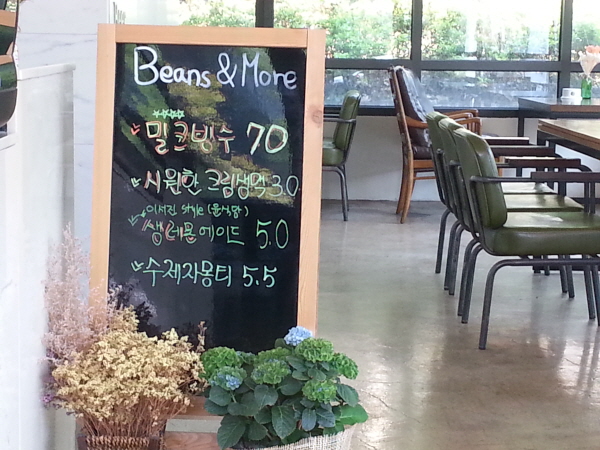 Beans & More
밀크빙수 70
시원한 크림생맥 3.0
이서진 style (윤식당)
생레몬에이드 5.0
수제자몽티 5.5